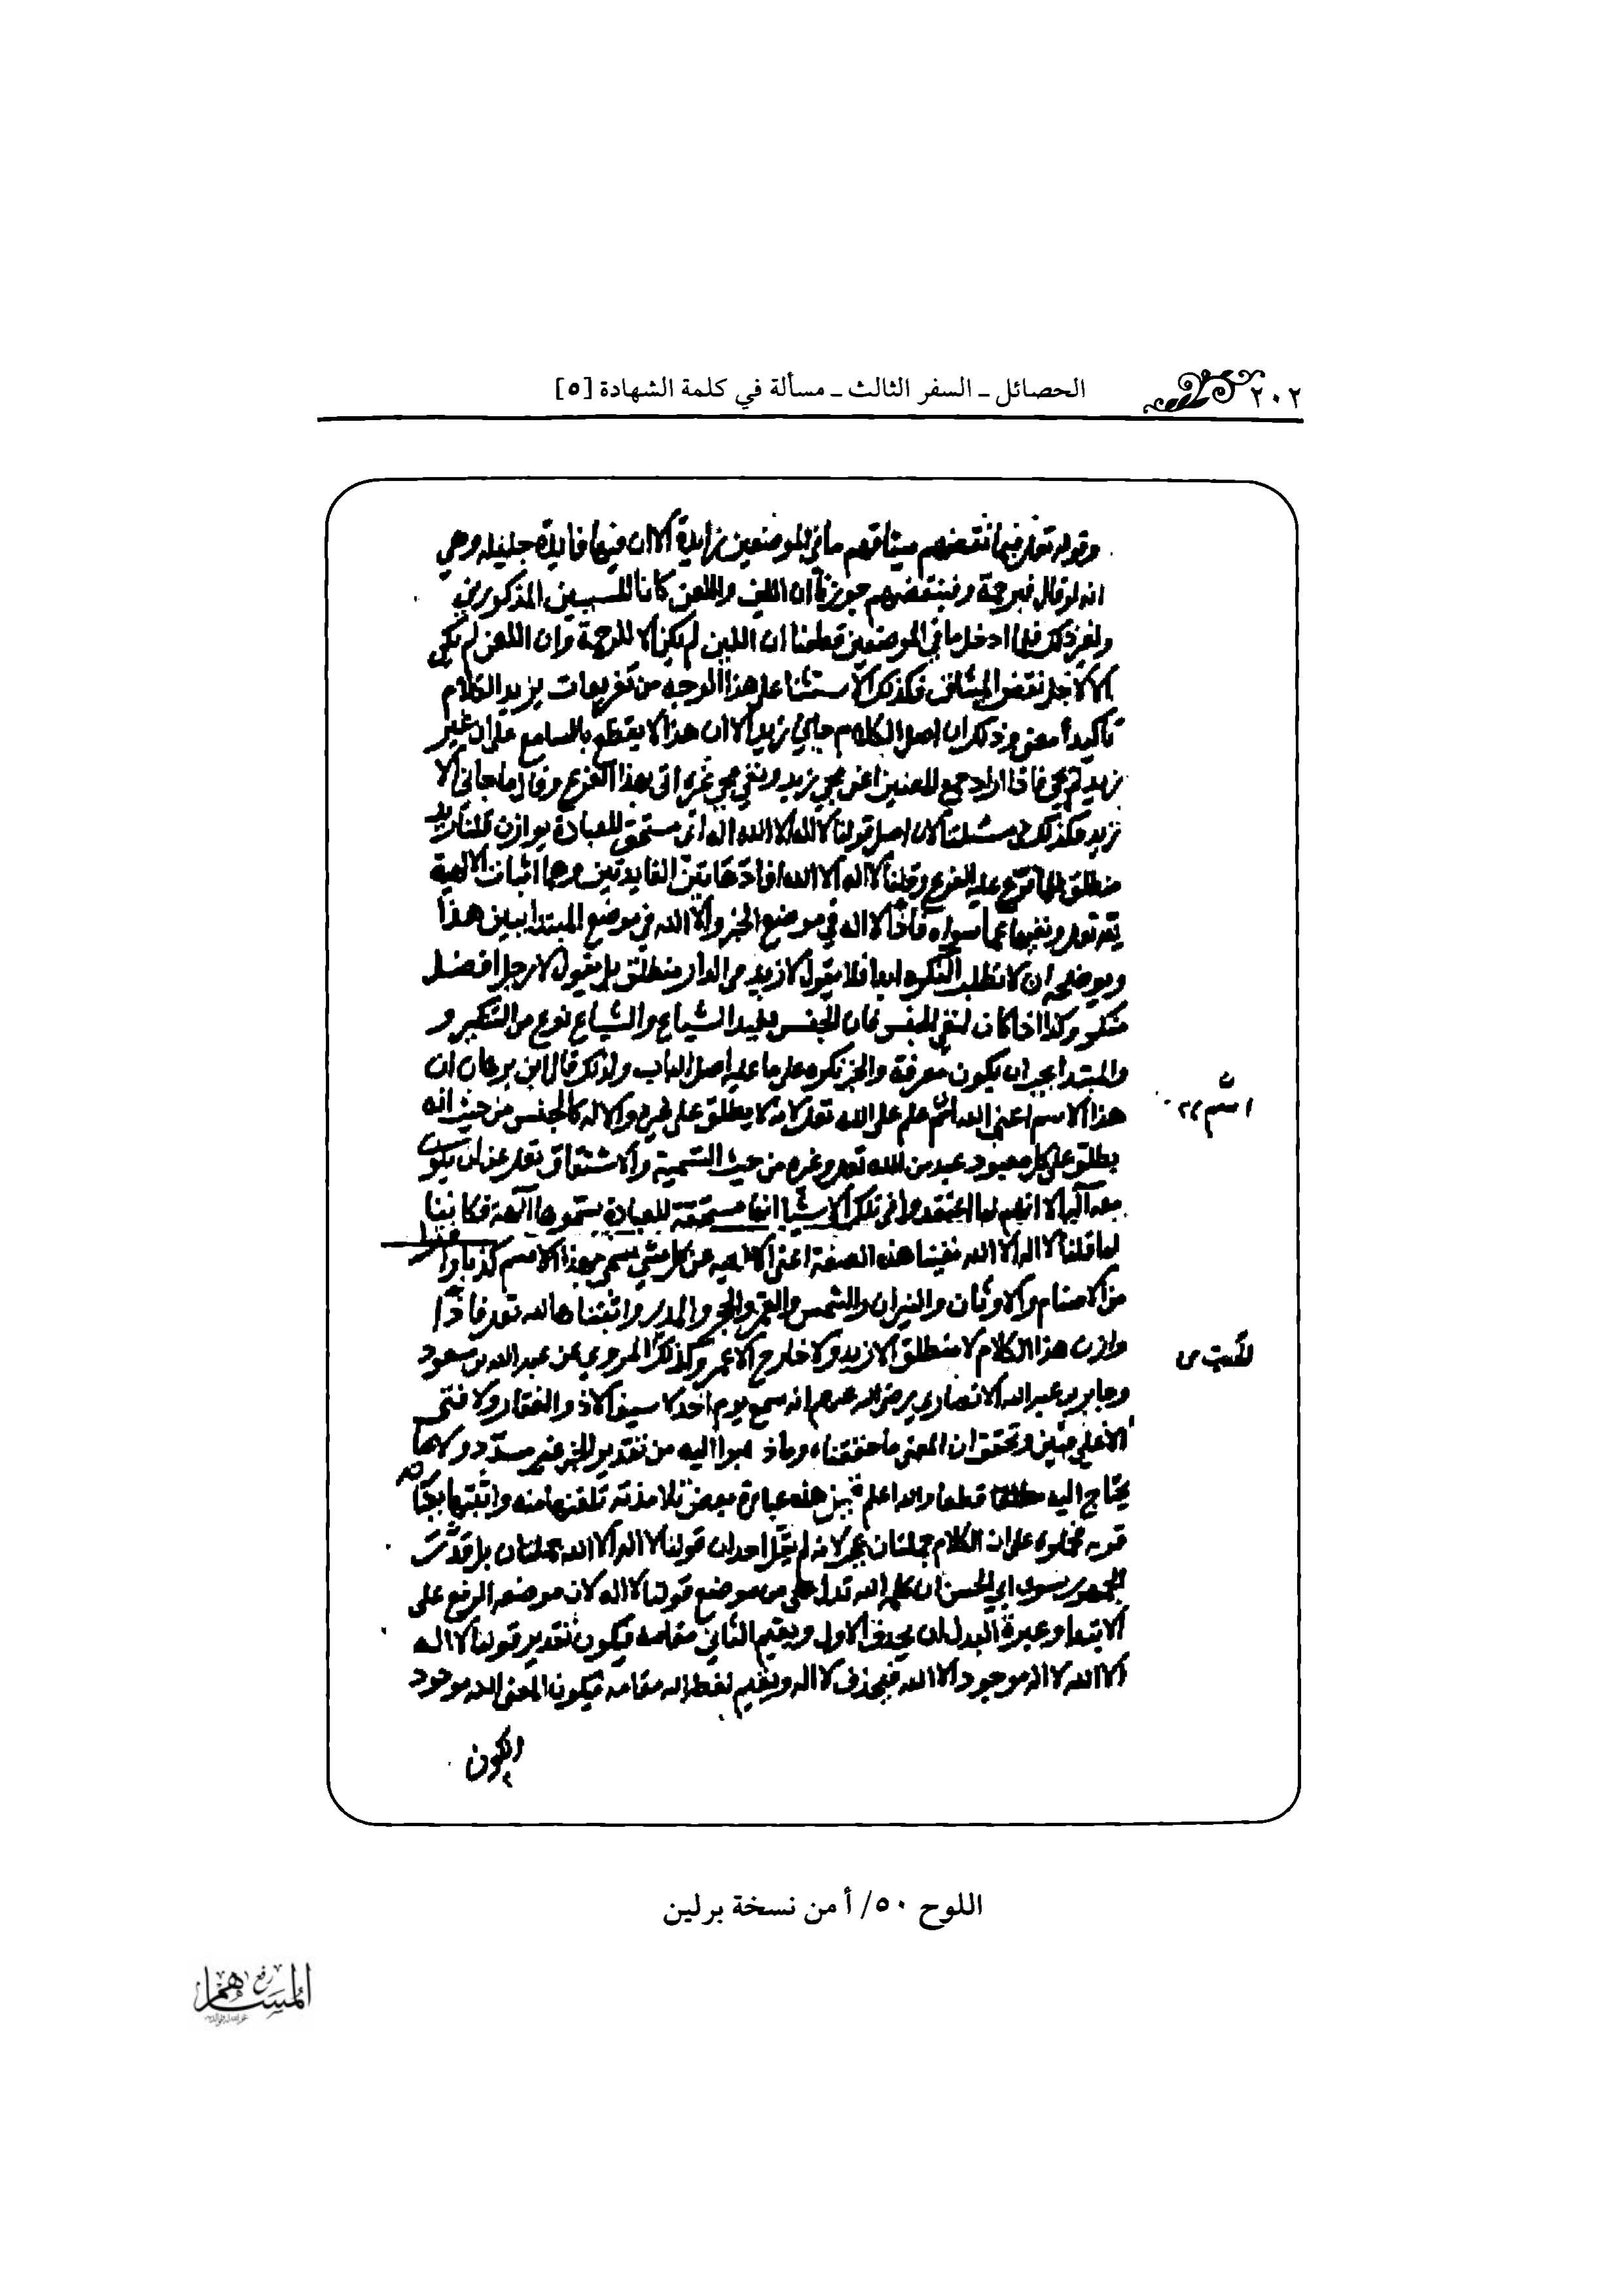 ٢٠٢
الحصائل ـ السفر الثالث ـ مسألة في كلمة الشهادة [٥]
وقوله تعالى فبما نقضهم ميثاقهم ما في الموضعين زايدة الا ان فيها فايدة جليله وهي
انه لو قال فبرحمة وفبنقضهم جوزنا ان اللين واللعن كانا للسببين المذكورين
ولغير ذلك فلما ادخل ما في الموضعين قطعنا ان اللين لم يكن الا للرحمة وان اللعن لم يكن
الا لاجل نقض الميثاق فكذلك الاستثنا على هذا الوجه من تفريعات يزيد الكلام
تأكيدا معنى وذلك ان اصل الكلام جاني زيد الا ان هذا لا يقطع بالسامع على ان غير
زيد لم يجي فاذا اراد جمع المعنيين اعني مجي زيد ونفي مجي غيره اتى بهذا الفرع وقال ما جاني الا
زيد فكذلك في مسئلتنا لان اصل قولنا لا اله الا الله الله اي مستحق للعبادة يوازن قلنا زيد
منطلق فلما فرع عليه الفرع وقلنا لا اله الا الله افاد هاتين الفايدتين وهما اثبات الالهية
لله تعالى ونفيها عما سواه فاذا لا اله في موضع الخبر والا الله في موضع المبتدا يبين هذا
ويوضحه ان لا تطلب النكره ابدا فلا يقول لا زيد في الدار منطلق بل يقول لا رجل افضل
منك وكذا اذا كان لنفي الجنس فان الجنس يفيد الشياع والشياع نوع من التنكير و
والمبتدا يجب ان يكون معرفة والخبر نكره على ما عليه اصل الباب ولذلك قال ابن برهان ان
هذا الاسم اعني الله اسم علم على الله تعالى لانه لا يطلق على غيره والاله كالجنس من حيث انه
يطلق على كل معبود عبد من الله تعالى وغيره من حيث التسمية والاشتقاق تعالى عن ان يكون
معه آلها الا انهم لما اعتقدوا في تلك الاشيا انها مستحقة للعبادة يسموها آلهة فكاننا
لما قلنا لا اله الا الله نفينا هذه الصفة اعني الالهيه عن كل شي سمي بهذا الاسم كذبا وافترا
من الاصنام والاوثان والنيران والشمس والقمر والحجر والمدر واثبتناها لله تعالى فاذا
وازن هذا الكلام لا منطلق الا زيد ولا خارج الا عمرو وكذلك المروي عن عبد الله بن مسعود
وجابر بن عبد الله الانصاري رضي الله عنهم انه سمع يوم احد لا سيف الا ذو الفقار ولا فتى
الا علي فتبين وتحقق ان المعنى ما حققناه وما ذهبوا اليه من تقدير الخبر غير مسدد ولا مما
يحتاج اليه قطعا والله اعلم هذه عبارة بعض تلامذته تلقنها منه واثبتها بحتا
على ان الكلام جملتان لانه لم يقل احد ان قولنا لا اله الا الله جملتان بل قدرت
الجمهور سوى ابي الحسن ان كلمة الله تدل على من موضع قولنا لا اله لان موضعه الرفع على
الابتدا وعبرة البدل ان يحذف الاول ويقيم الثاني مقامه فيكون تقدير قولنا لا اله
الا الله لا اله موجود الا الله فيحذف لا اله ويقيم لفظ الله مقامه فيكون المعنى الله موجود
ايكون
اللوح ٥٠/ أ من نسخة برلين